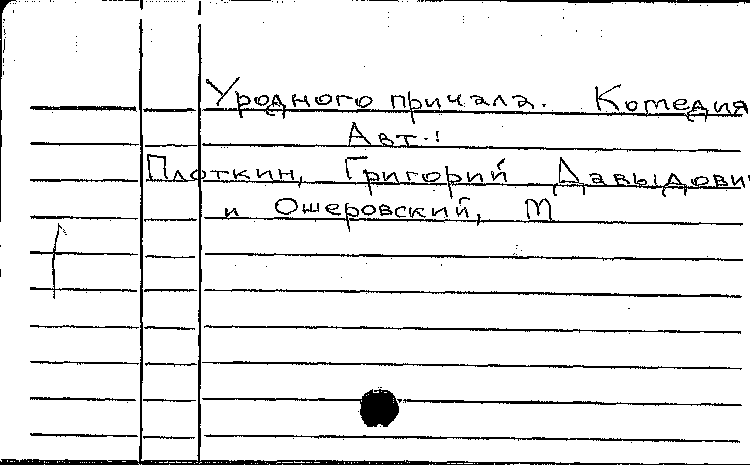 Уродного причала. Комедия
Авт.:
Плоткин, Григорий Давыдови
и Ошеровский, М